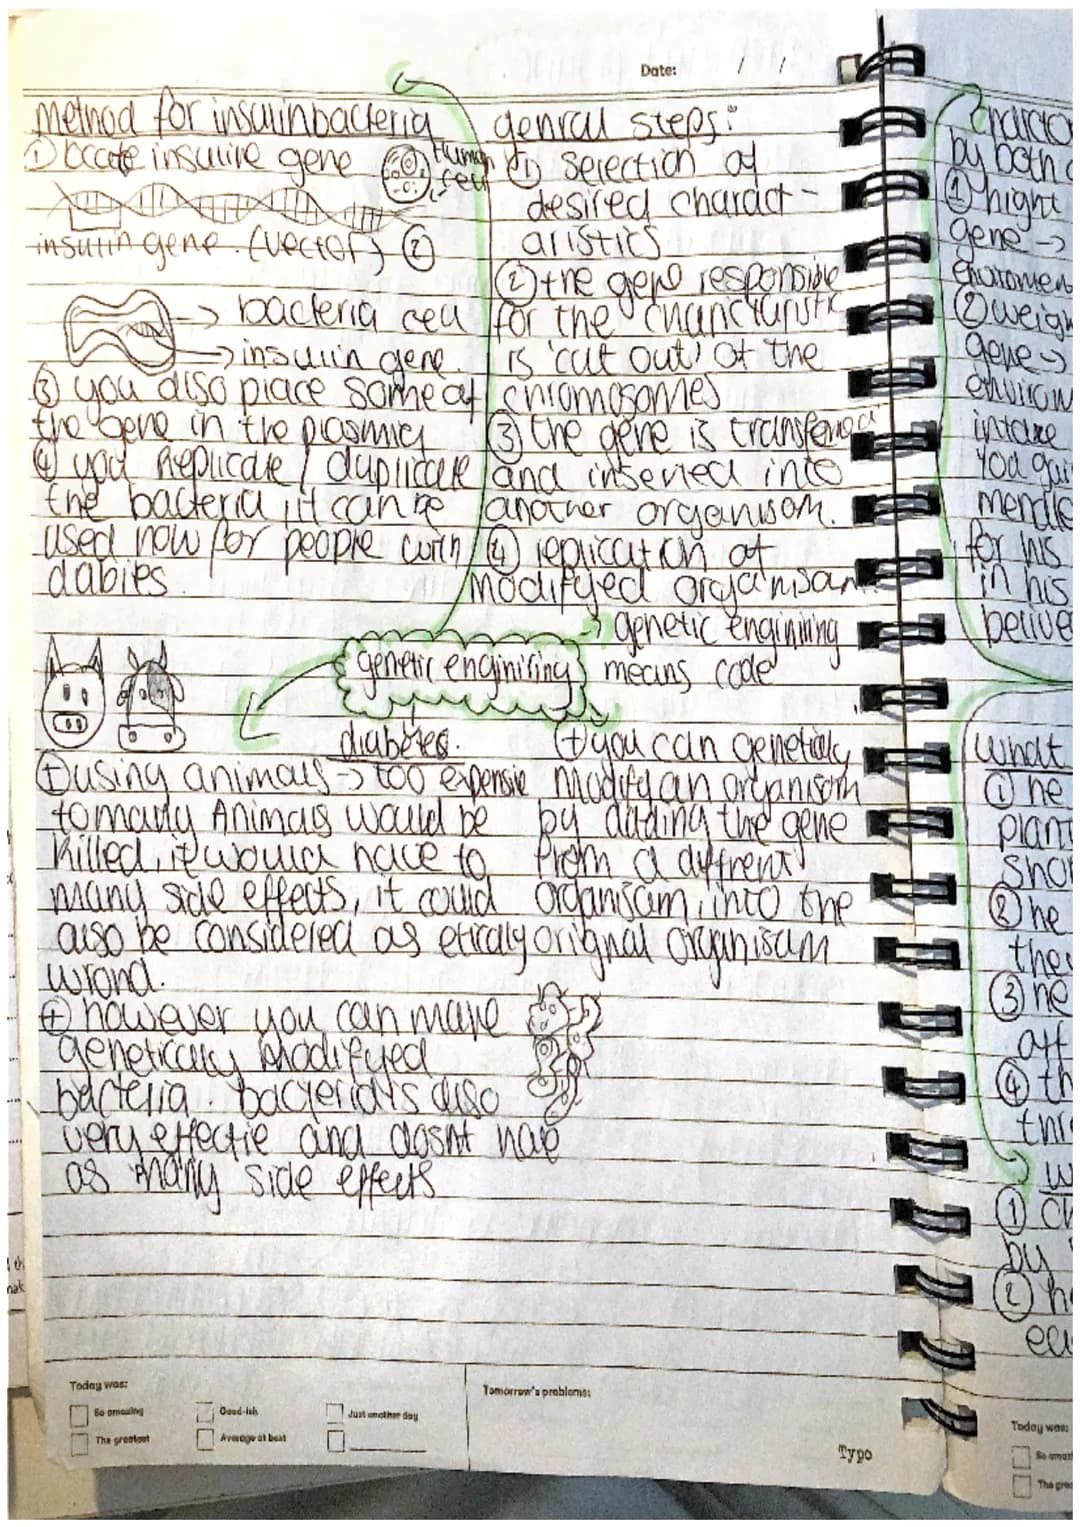 Date: / /
method for insulin bacteria
① locate insuline gene
Human
cell
insulin gene. (vector) ②
→ bacteria cell
→ insulin gene.
③ you also place some of
the gene in the plasmid
④ you Replicate / duplicate
the bacteria, it can be
used now for people with
dabies.
genral steps:
① selection of
desired charact-
aristics
② the gene responsible
for the
is 'cut out' of the
chromosomes
③ the gene is transfered
and inserted into
another organisom.
④ replication of
modifyed organisom
genetic enginiring
→ genetic enginiring
means code
diabetes.
⊕ using animals → too expensie
to many Animals would be
killed, it would have to
many side effects, it could
also be considered as
wrond.
⊕ however you can make
genetically Modifyed
bacteria. bacteria is also
very effectie and dosnt have
as many side effects
⊕ you can geneticly
Modify an organisom
by adding the gene
from a diffrent
organisom, into the
orignal organisom
Today was:
So amazing
Good-ish
Just another day
The greatest
Average at best
Tomorrow's problems:
Typo
by both
① hight
gene →
② weigh
gene →
intake
for his
in his
what
① he
plant
② he
③ he
④ th
①
by
②
Today was: